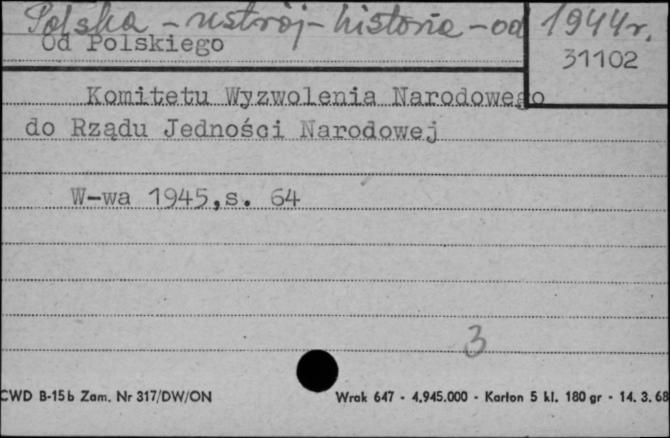 Polska - ustrój - historia - od 1944 r.
Od Polskiego
31102
Komitetu Wyzwolenia Narodowego
do Rządu Jedności Narodowej
W-wa 1945,s. 64
3
CWD B-15b Zam. Nr 317/DW/ON Wrak 647 - 4.945.000 - Karton 5 kl. 180 gr - 14. 3. 68